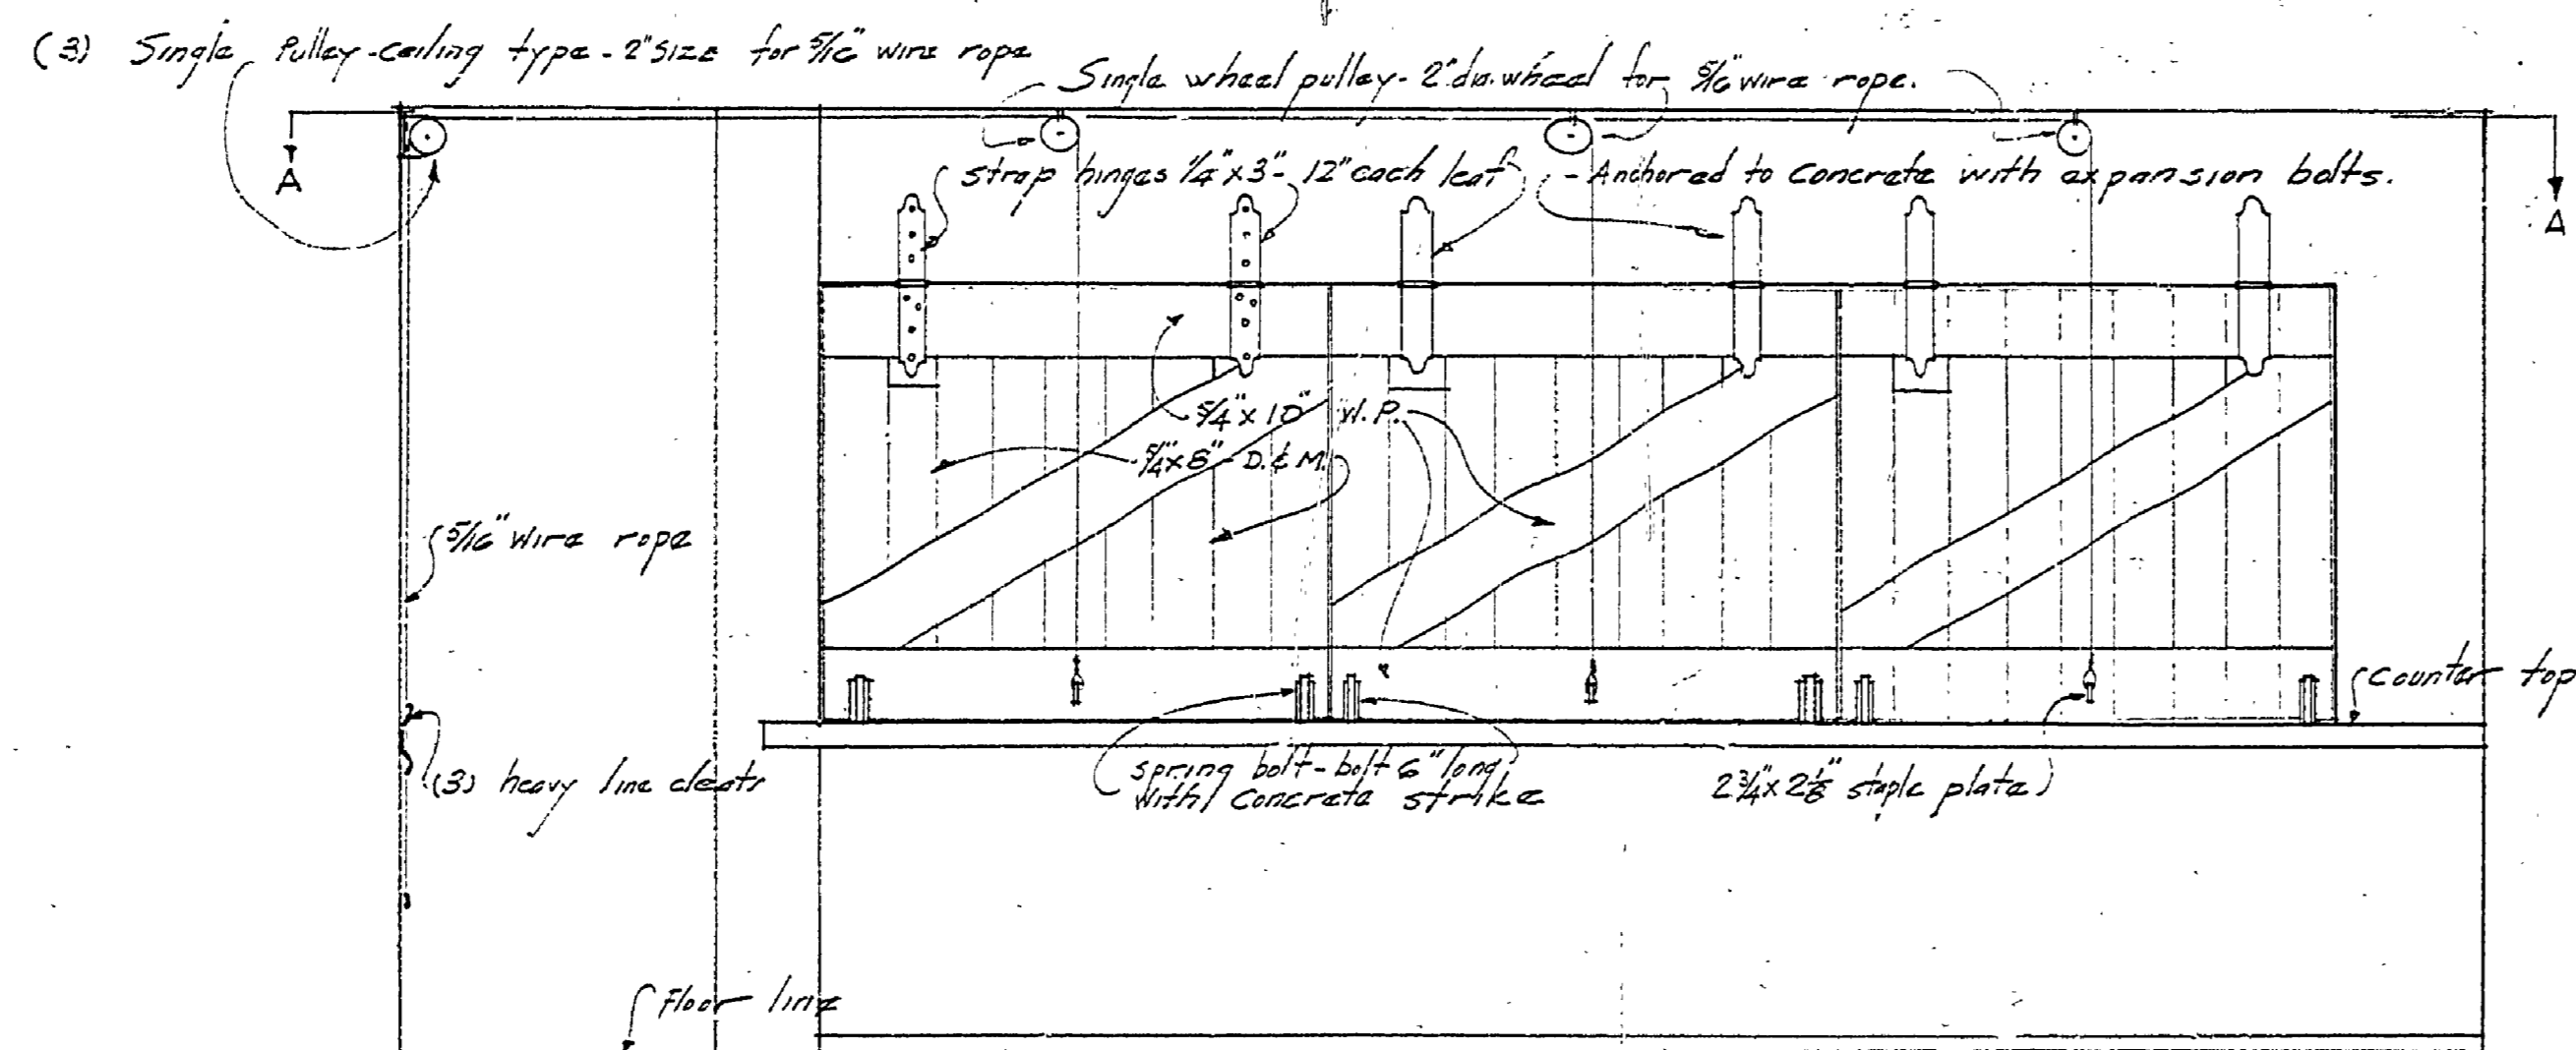 (3) Single Pulley-ceiling type - 2" size for 5/16" wire rope
Single wheel pulley - 2" dia. wheel for 5/16" wire rope.
A
strap hinges 1/4" x 3" - 12" each leaf
- Anchored to concrete with expansion bolts.
A
5/4" x 10" W.P.
5/4" x 8" - D. & M.
5/16" wire rope
counter top
(3) heavy line cleats
spring bolt - bolt 6" long
with concrete strike
2 3/4" x 2 1/8" staple plate
Floor line